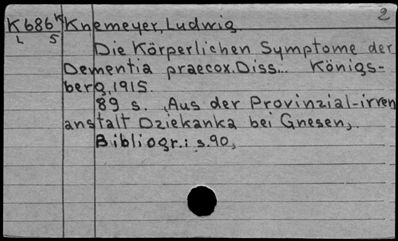 2
K686K Knemeyer, Ludwig
L S
Die Körperlichen Symptome der
Dementia praecox. Diss... Königs-
berg, 1915.
89 s. „Aus der Provinzial-irren
anstalt Dziekanka bei Gnesen„
Bibliogr.: s.90„